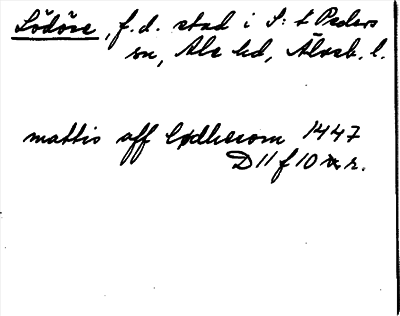 Lödöse, f.d. stad i S:t Peders
sn, Ale hd, Älvsb. l.
mattis aff lødhesom 1447
D 11 f 10 r.